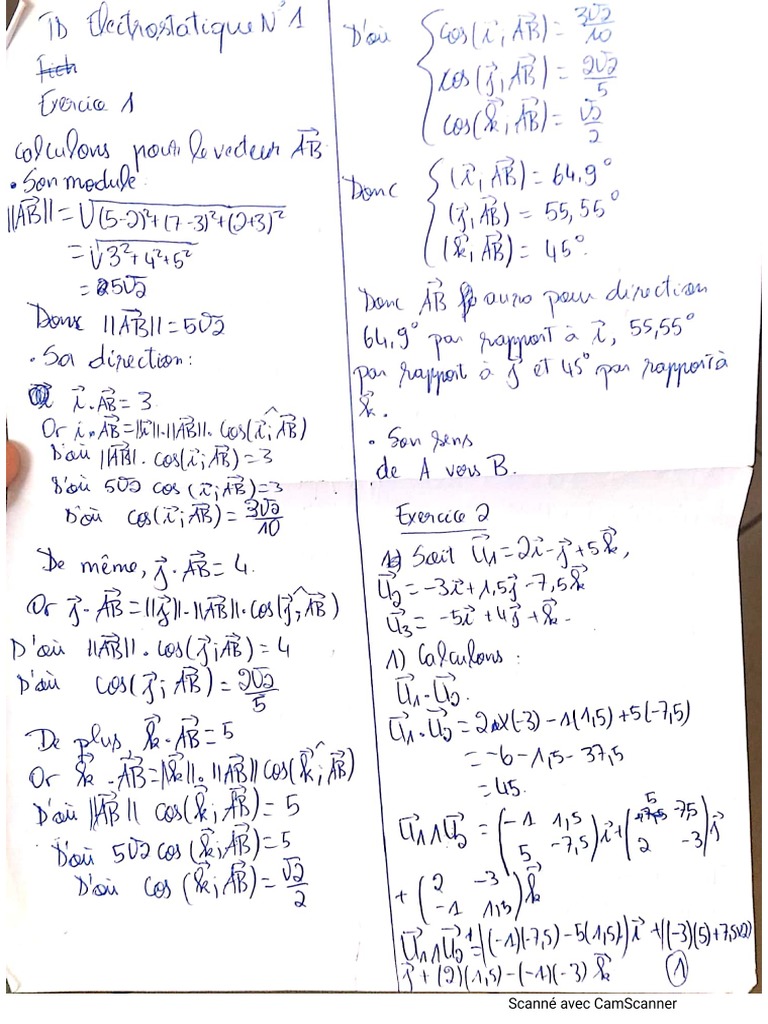 TD Electrostatique N°1
Exercice 1
Calculons pour le vecteur AB⃗
• Son module
||AB⃗|| = √(5-2)²+(7-3)²+(2+3)²
= √3²+4²+5²
= 5√2
Donc ||AB⃗|| = 5√2
• Sa direction :
i⃗ . AB⃗ = 3
Or i⃗ . AB⃗ = ||i⃗||.||AB⃗||. cos(i⃗ ; AB⃗)
D'où ||AB⃗|| . cos(i⃗ ; AB⃗) = 3
D'où 5√2 cos (i⃗ ; AB⃗) = 3
D'où cos(i⃗ ; AB⃗) = 3√2/10
De même, j⃗ . AB⃗ = 4.
Or j⃗ . AB⃗ = ||j⃗||.||AB⃗||. cos(j⃗ ; AB⃗)
D'où ||AB⃗|| . cos(j⃗ ; AB⃗) = 4
D'où cos(j⃗ ; AB⃗) = 2√2/5
De plus, k⃗ . AB⃗ = 5
Or k⃗ . AB⃗ = ||k⃗||. ||AB⃗|| cos(k⃗ ; AB⃗)
D'où ||AB⃗|| cos(k⃗ ; AB⃗) = 5
D'où 5√2 cos (k⃗ ; AB⃗) = 5
D'où cos (k⃗ ; AB⃗) = √2/2
D'où { cos(i⃗, AB⃗) = 3√2/10
cos(j⃗, AB⃗) = 2√2/5
cos(k⃗, AB⃗) = √2/2
Donc { (i⃗, AB⃗) = 64,9°
(j⃗, AB⃗) = 55,55°
(k⃗, AB⃗) = 45°.
Donc AB⃗ aura pour direction
64,9° par rapport à i⃗, 55,55°
par rapport à j⃗ et 45° par rapport à
k⃗.
• Son sens
de A vers B.
Exercice 2
1) Soit U₁⃗ = 2i⃗ - j⃗ + 5k⃗,
U₂⃗ = -3i⃗ + 1,5j⃗ - 7,5k⃗
U₃⃗ = -5i⃗ + 4j⃗ + k⃗.
1) Calculons :
U₁⃗ . U₂⃗
U₁⃗ . U₂⃗ = 2x(-3) - 1(1,5) + 5(-7,5)
= -6 - 1,5 - 37,5
= 45.
U₁⃗ ∧ U₂⃗ = (-1 1,5
5 -7,5) i⃗ + (5 7,5
2 -3) j⃗
+ (2 -3
-1 1,5) k⃗
U₁⃗ ∧ U₂⃗ = ((-1)(-7,5) - 5(1,5)) i⃗ + ((-3)(5) + 7,5x2)
j⃗ + (2)(1,5) - (-1)(-3) k⃗
①
Scanné avec CamScanner